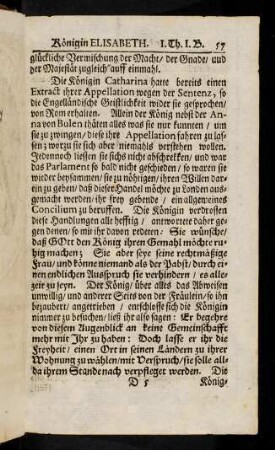 Königin ELISABETH. I. Th. I. B. 57
glückliche Vermischung der Macht/ der Gnade/ und
der Majestät zugleich auff einmahl.
Die Königin Catharina hatte bereits einen
Extract ihrer Appellation wegen der Sentenz, so
die Engelländische Geistlichkeit wider sie gesprochen/
von Rom erhalten. Allein der König nebst der An-
na von Bulen thäten alles was sie nur kunnten / um
sie zu zwingen/ diese ihre Appellation fahren zu las-
sen; worzu sie sich aber niemahls verstehen wollen.
Jedennoch liessen sie sichs nicht abschrecken/ und war
das Parlament so bald nicht geschieden / so waren sie
wieder beysammen/ sie zu nöhtigen/ ihren Willen dar-
ein zu geben/ daß dieser Handel möchte zu Londen aus-
gemacht werden/ ihr frey gebende / ein allgemeines
Concilium zu beruffen. Die Königin verdrossen
diese Handlungen alle hefftig / antwortete daher ge-
gen denen/ so mit ihr davon redeten: Sie wünsche/
daß GOtt den König ihren Gemahl möchte ru-
hig machen; Sie aber seye seine rechtmäßige
Frau/ und könne niemand als der Pabst/ durch ei-
nen endlichen Ausspruch sie verhindern / es alle-
zeit zu seyn. Der König/ über alls das Abweisen
unwillig/ und anderer Seits von der Fräulein/ so ihn
bezaubert/ angetrieben / entschlosse sich die Königin
nimmer zu besuchen/ ließ ihr also sagen: Er begehre
von diesem Augenblick an keine Gemeinschafft
mehr mit Ihr zu haben: Doch lasse er ihr die
Freyheit / einen Ort in seinen Ländern zu ihrer
Wohnung zu wählen/ mit Verspruch/ sie solle all-
da ihrem Stande nach verpfleget werden. Die
D 5 König-